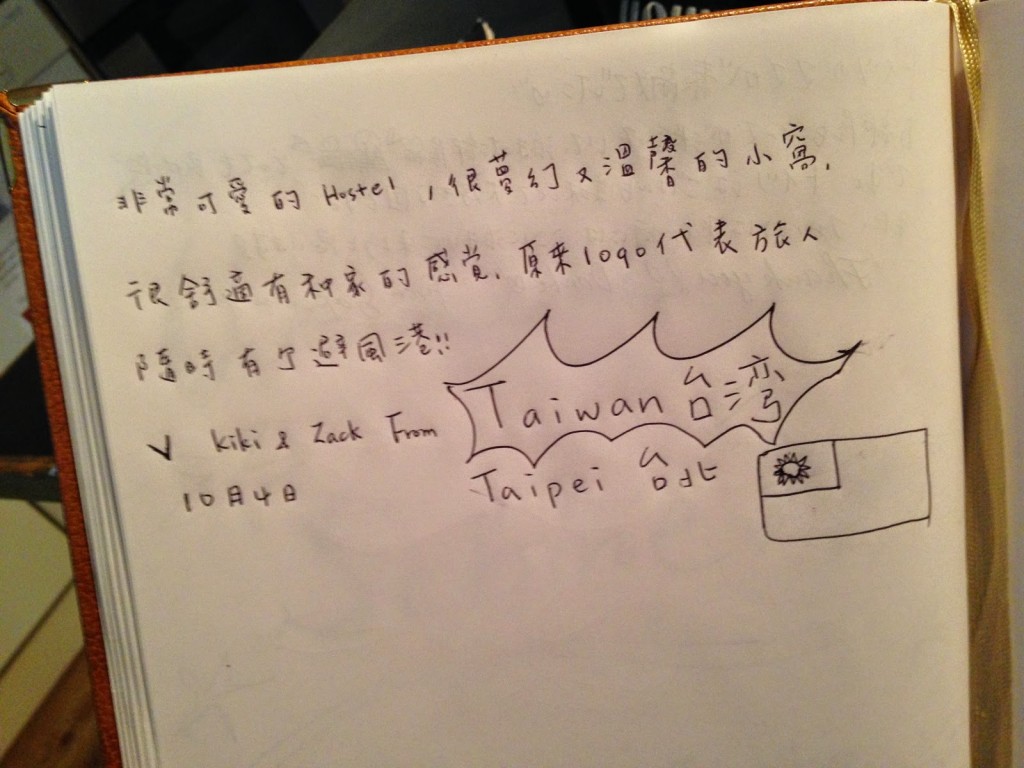 非常可愛的 Hostel，很夢幻又溫馨的小窩.
很舒適有种家的感覚. 原來logo代表旅人
隨時有了避風港!!
Kiki & Zack From
Taiwan 台湾
Taipei 台北
10月4日